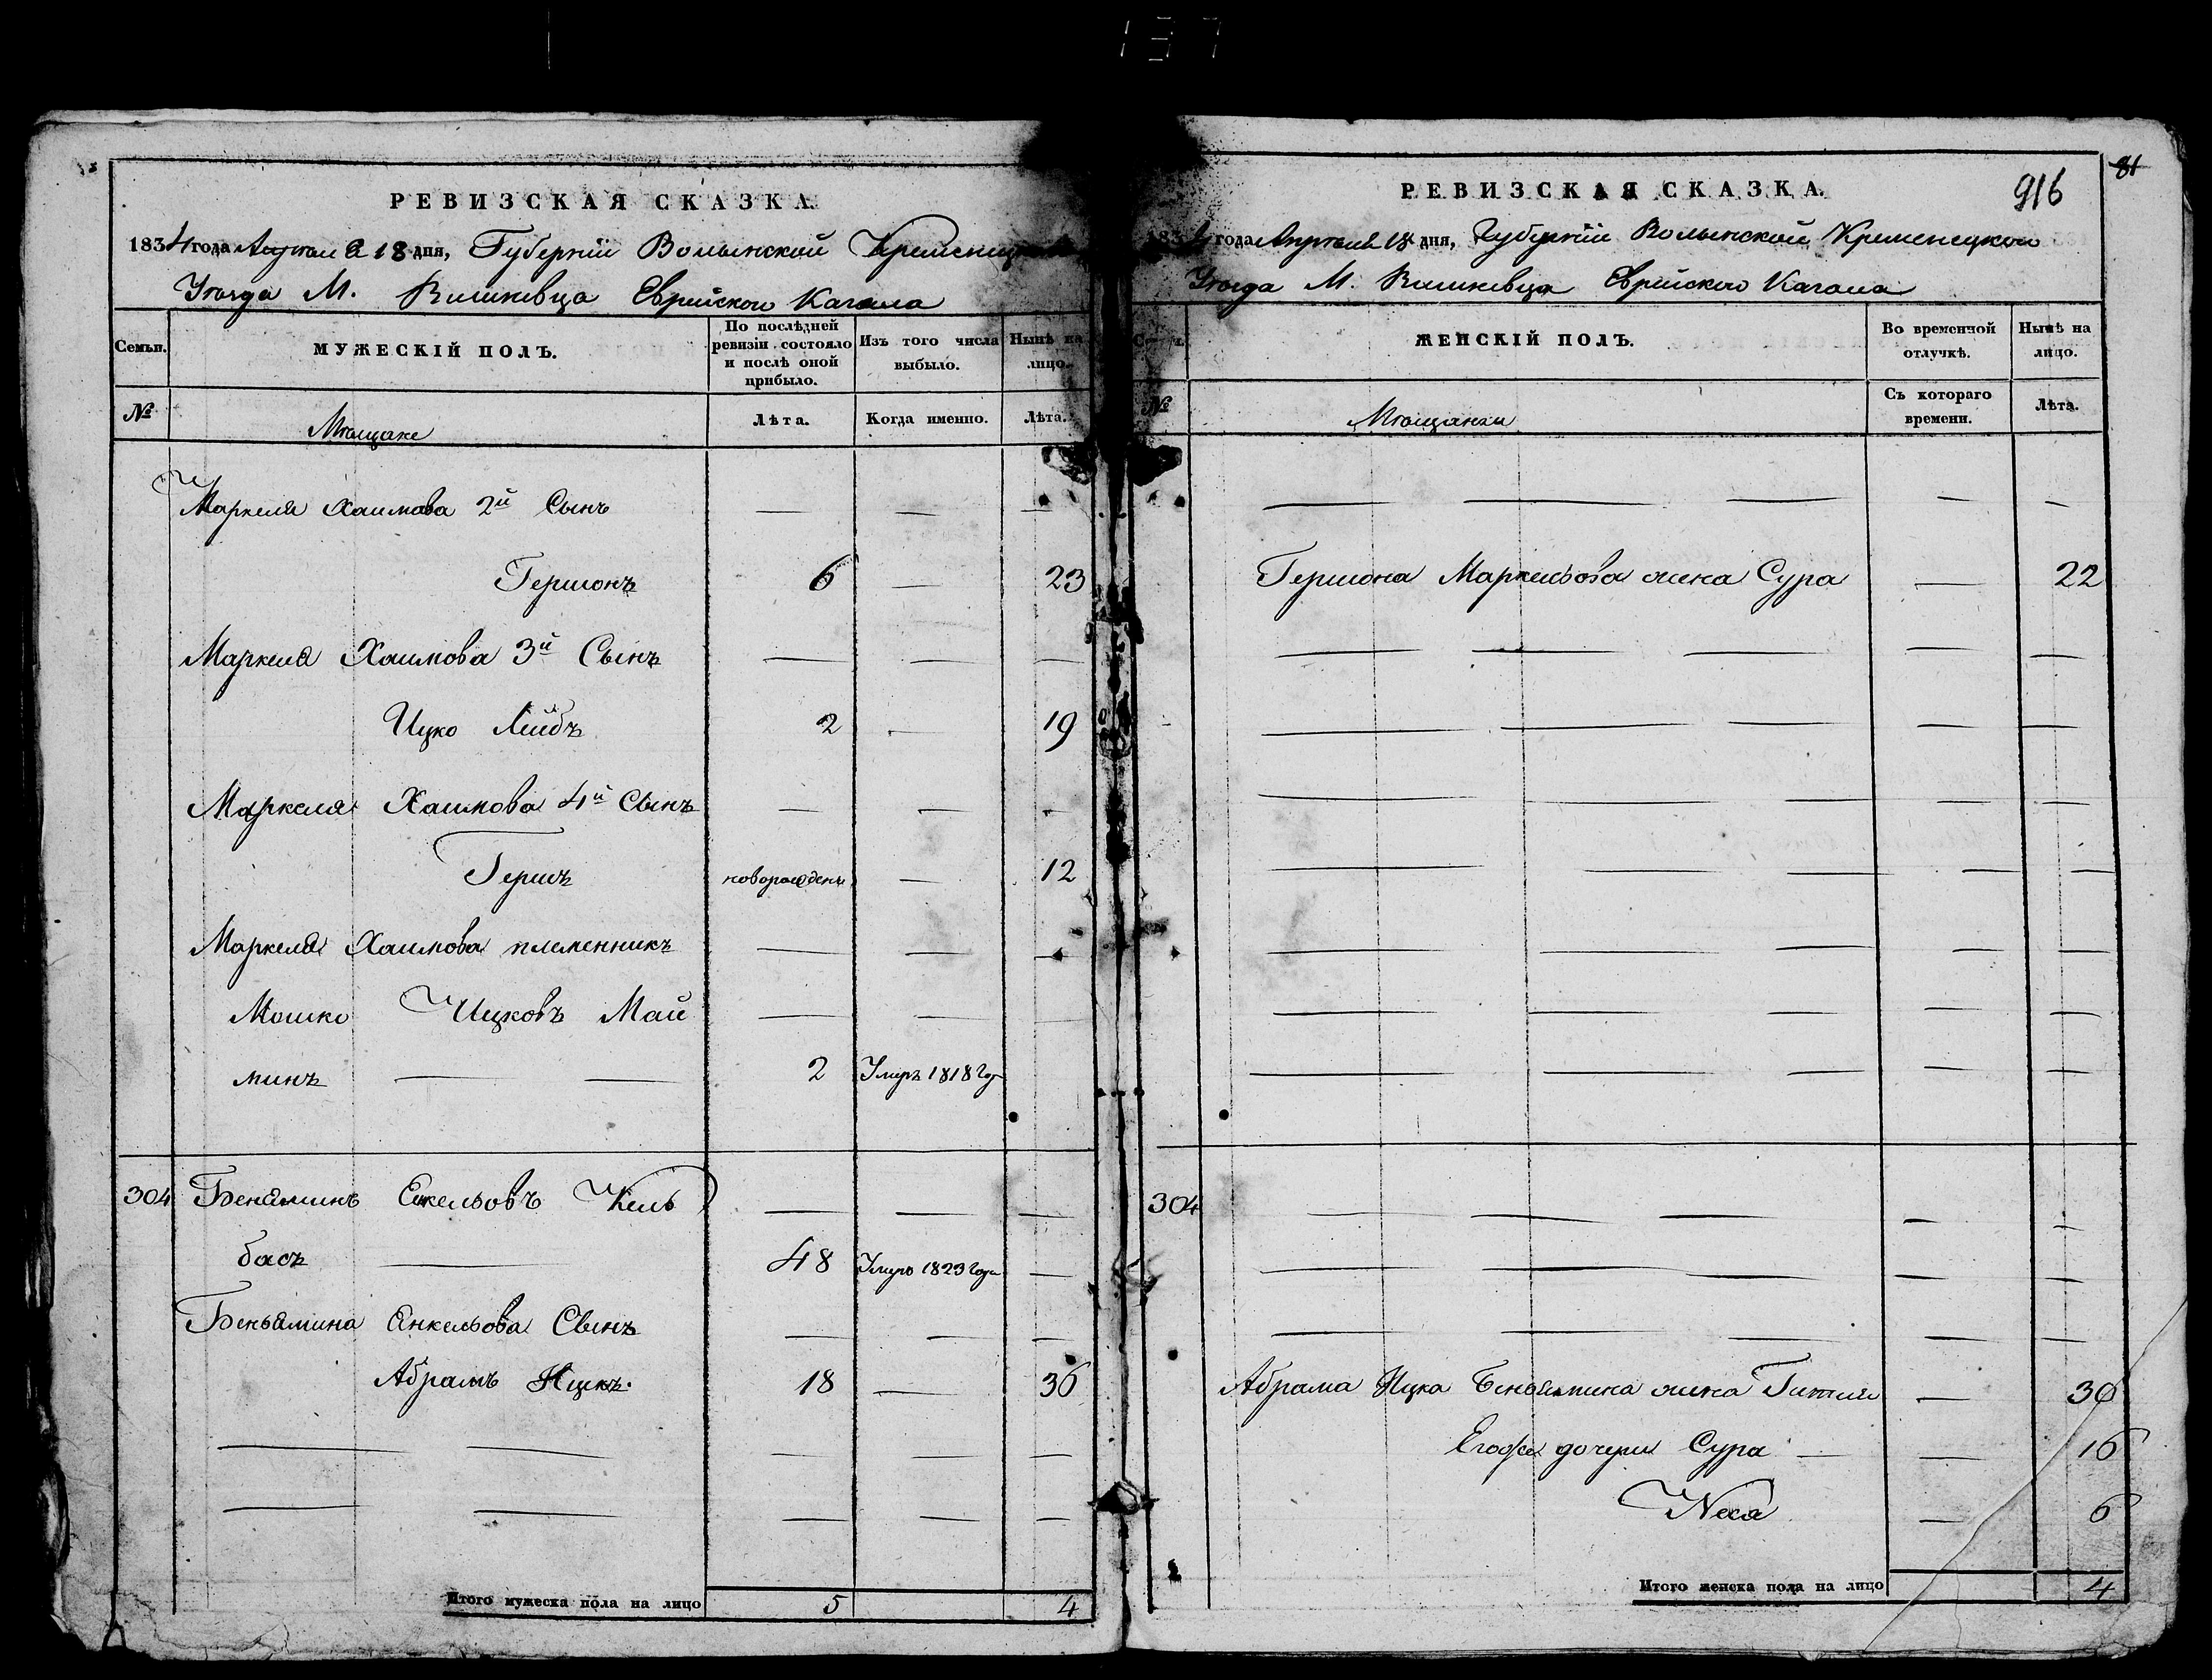 137
РЕВИЗСКАЯ СКАЗКА.
1834 года Апреля 18 дня, Губернiи Волынской Кременецкаго
Уѣзда М. Вишневца Еврейскаго Кагала
Семьи.
МУЖЕСКІЙ ПОЛЪ.
По послѣдней ревизіи состояло и послѣ оной прибыло.
Изъ того числа выбыло.
Нынѣ на лицо.
№
Мѣщане
Лѣта.
Когда именно.
Лѣта.
Маркеля Хаимова 2й Сынъ
Гершонъ 6 23
Маркеля Хаимова 3й Сынъ
Ицко Лейбъ 2 19
Маркеля Хаимова 4й Сынъ
Гершъ новорожденъ 12
Маркеля Хаимова племенникъ
Мошко Ицковъ Май
минъ 2 Умеръ 1818 Год
304 Беняминъ Енкельовъ Кель
басъ 48 Умеръ 1823 Года
Беньямина Енкельова Сынъ
Абрамъ Ицкъ. 18 36
Итого мужеска пола на лицо 5 4
81
916
РЕВИЗСКАЯ СКАЗКА.
1834 года Апреля 18 дня, Губернiи Волынской Кременецкаго
Уѣзда М. Вишневца Еврейскаго Кагала
ЖЕНСКІЙ ПОЛЪ.
Во временной отлучкѣ.
Нынѣ на лицо.
№
Мѣщанки
Съ котораго времени.
Лѣта.
Гершона Маркельова жена Сура 22
304
Абрама Ицка Беньямина жена Гитля 30
Егоже дочери Сура 16
Неся 6
Итого женска пола на лицо 4